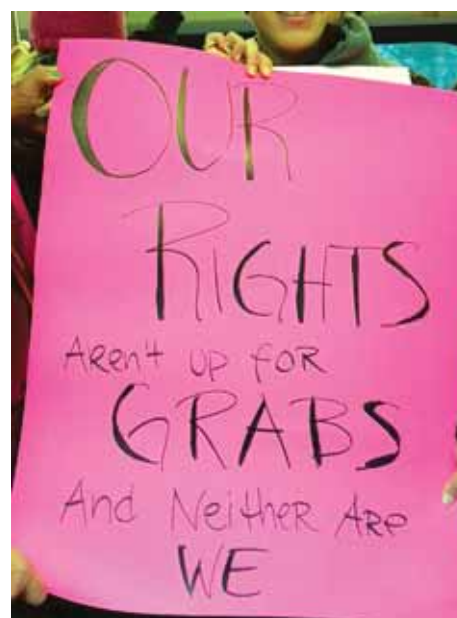 OUR
RIGHTS
AREn't UP FOR
GRABS
And NEitHER ARE
WE